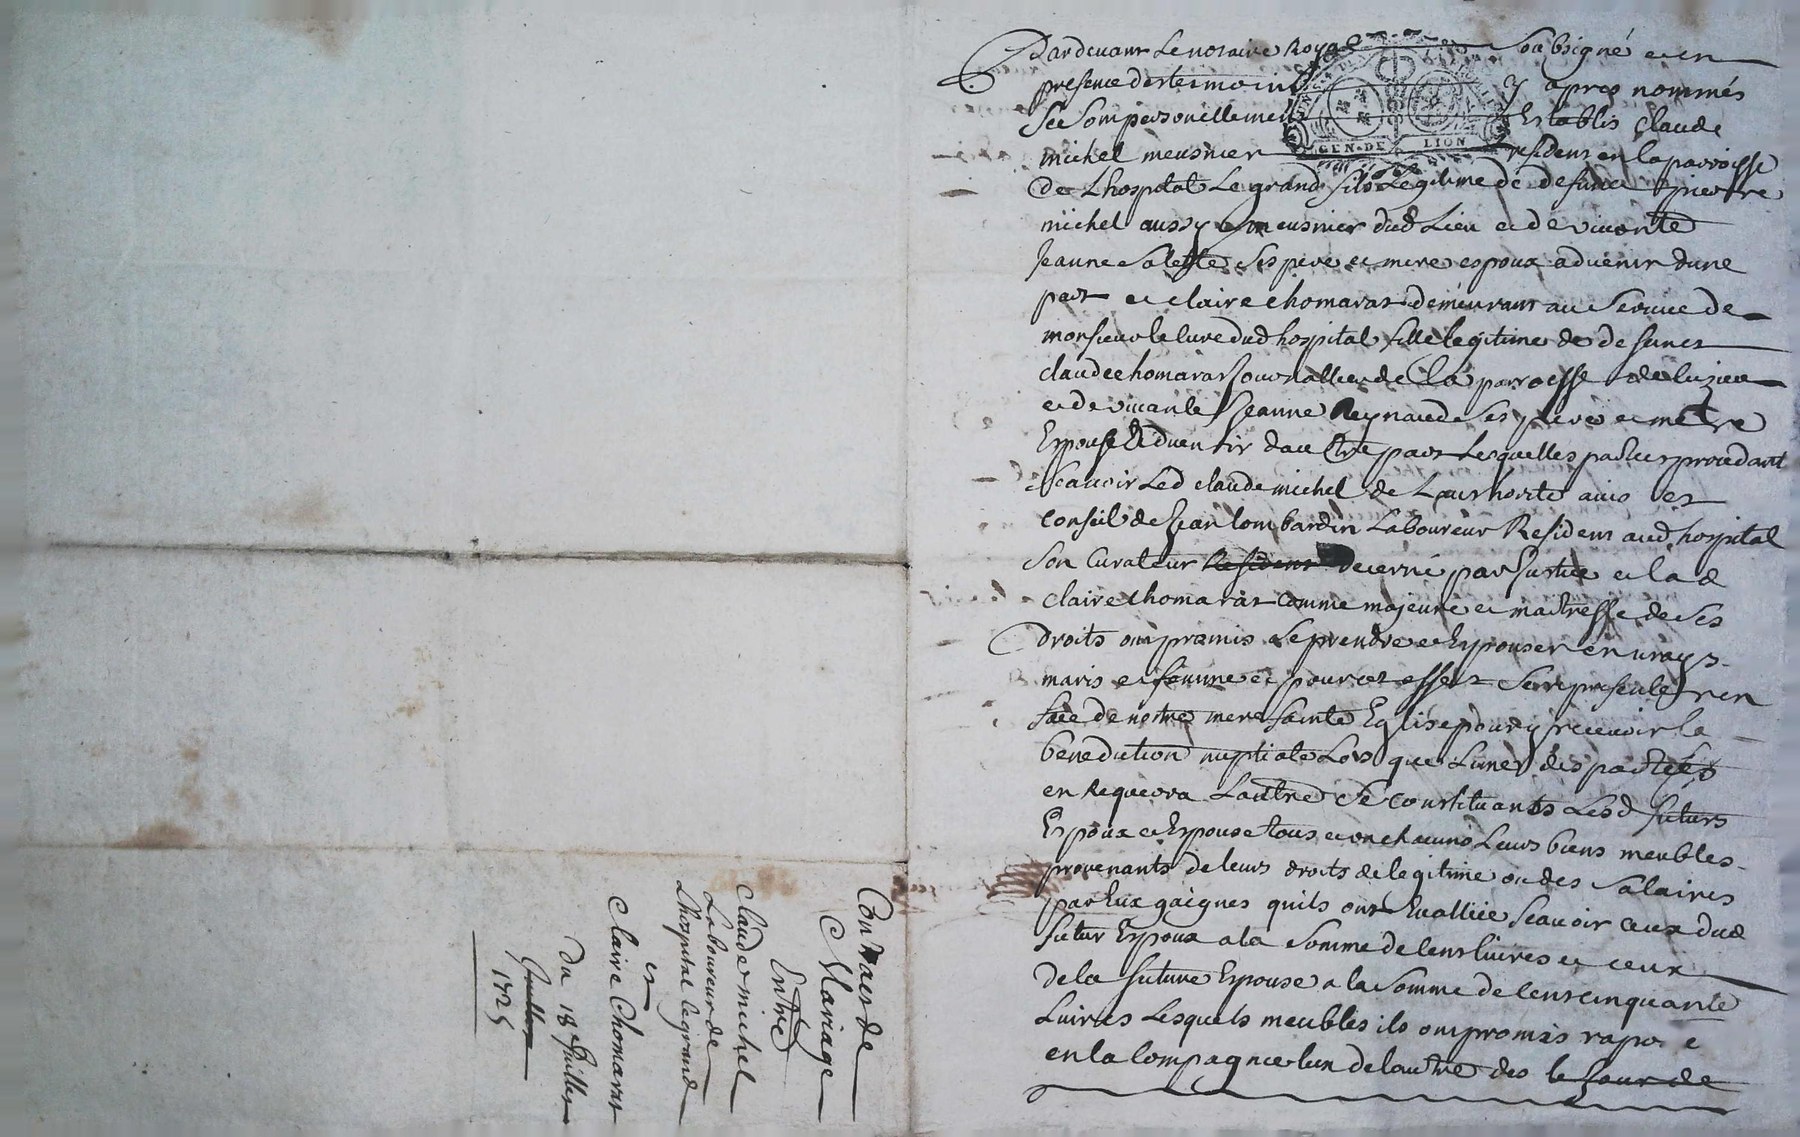 Pardevant Le notaire Royal soubsigné et en
presence des tesmoins y apres nommés
se sont personnellement Establis Claude
michel meusnier resident en la parroisse
de Lhospital Le grand fils Legitime de defunct pierre
michel aussy meusnier dud Lieu et de vivante
Jeanne Ses pere et mere espoux advenir dune
part et claire chomarat demeurant au Service de
monsieur le Cure dud hospital fille legitime de defunct
claude chomarat Journallier de la parroisse de
et de vivante Jeanne Reynaud Ses pere et mere
Espouse advenir dautre part Lesquelles parties procedant
Scavoir Led claude michel de Lauthorité avis et
conseil de Jean lombardin Laboureur Resident aud hospital
Son Curateur Resident decerné par Justice et lad
claire chomarat comme majeure et maitresse de Ses
Droits ont promis Se prendre et Espouser en vrays
maris et femme et pour cet effect Se representer en
face de nostre mere Sainte Eglise pour y recevoir la
benediction nuptiale Lors que Lune des parties
en Requerra Lautre Se constituants Lesd futurs
Espoux et Espouse tous et un chacuns Leurs biens meubles
provenants de leurs droits de legitime ou des Salaires
par Eux gaignes quils ont Evallué Scavoir ceux dud
futur Espoux a la Somme de cent livres et ceux
de la future Espouse a la Somme de cent cinquante
Livres Lesquels meubles ils ont promis
en la Compagnie lun de lautre des le Jour de
GEN·DE LION
Contract de
Mariage
Entre
Claude michel
Laboureur de
Lhospital le grand
et
Claire Chomarat
Du 18e Juillet
Juillet
1725